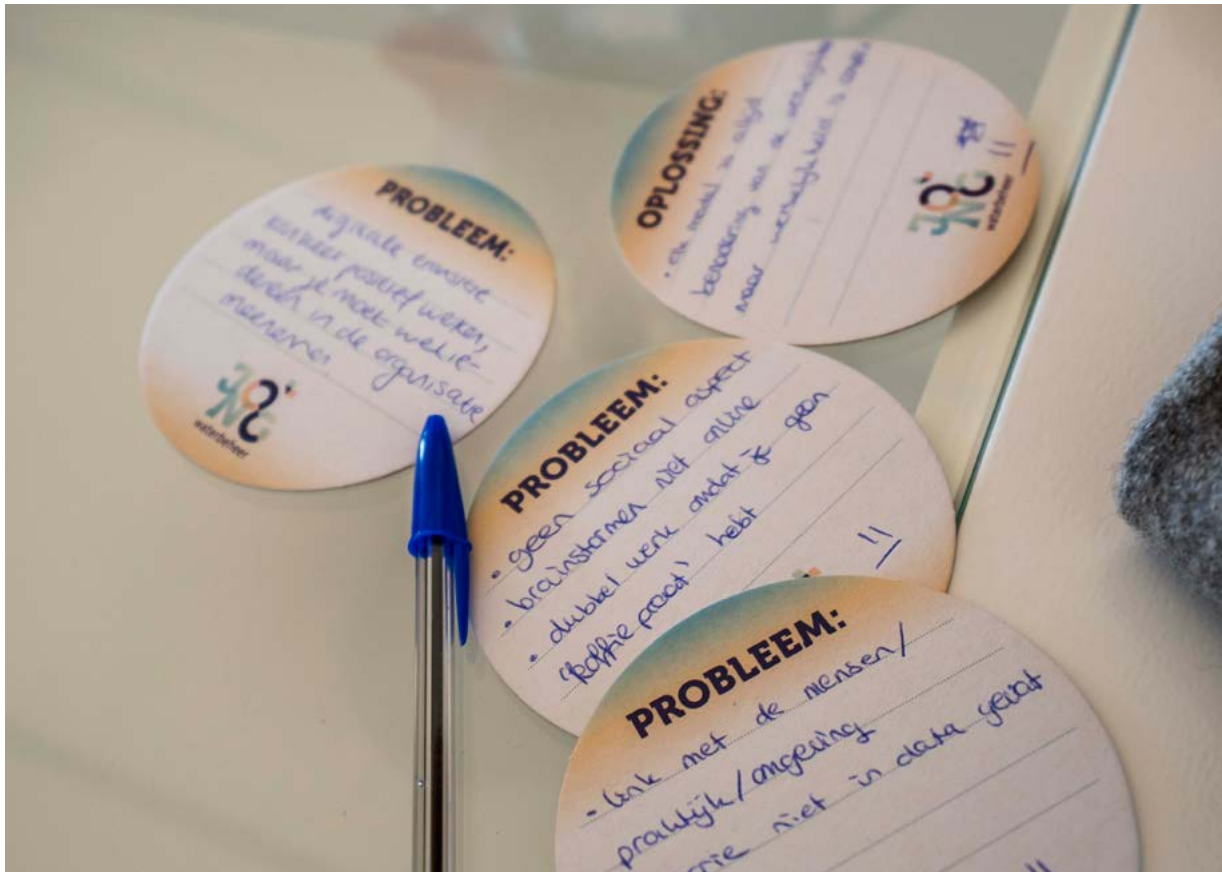 PROBLEEM:
digitale transitie
kan zeer positief werken,
maar je moet wel ie-
dereen in de organisatie
meenemen
JONG
waterbeheer
OPLOSSING:
• model is altijd
benadering van de werkelijkheid
maar werkelijkheid is
JONG
waterbeheer
PROBLEEM:
• geen sociaal aspect
• brainstormen niet online
• dubbel werk omdat je geen
'koffie praat' hebt
PROBLEEM:
• link met de mensen/
praktijk/omgeving
niet in data gevat